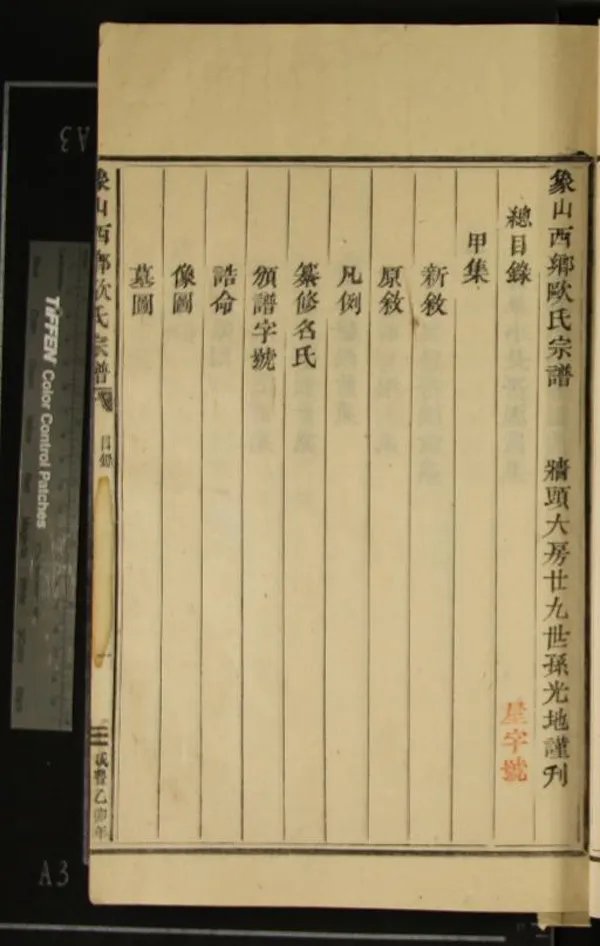 象山西鄉歐氏宗譜　牆頭大房廿九世孫光地謹刋
總目錄　星字號
甲集
新敘
原敘
凡例
纂修名氏
頒譜字號
誥命
像圖
墓圖
象山西鄉歐氏宗譜　目錄　一　咸豐乙卯年
TIFFEN Color Control Patches
A3
A3